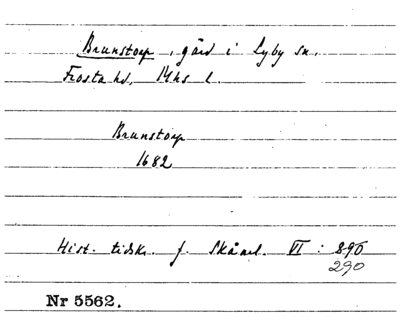 Brunstorp, gård i Lyby sn.
Frosta hd, Mhs l.
Brunstorp
1682
Hist. tidskr. f. Skånel. VI : 290
290
Nr 5562.